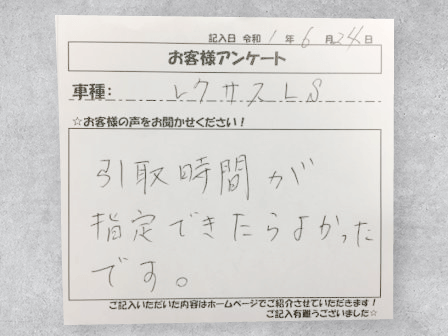 記入日 令和 1 年 6 月 24 日
お客様アンケート
車種: レクサスLS
☆お客様の声をお聞かせください！
引取時間が
指定できたらよかった
です。
ご記入いただいた内容はホームページでご紹介させていただきます！
ご記入有難うございました☆